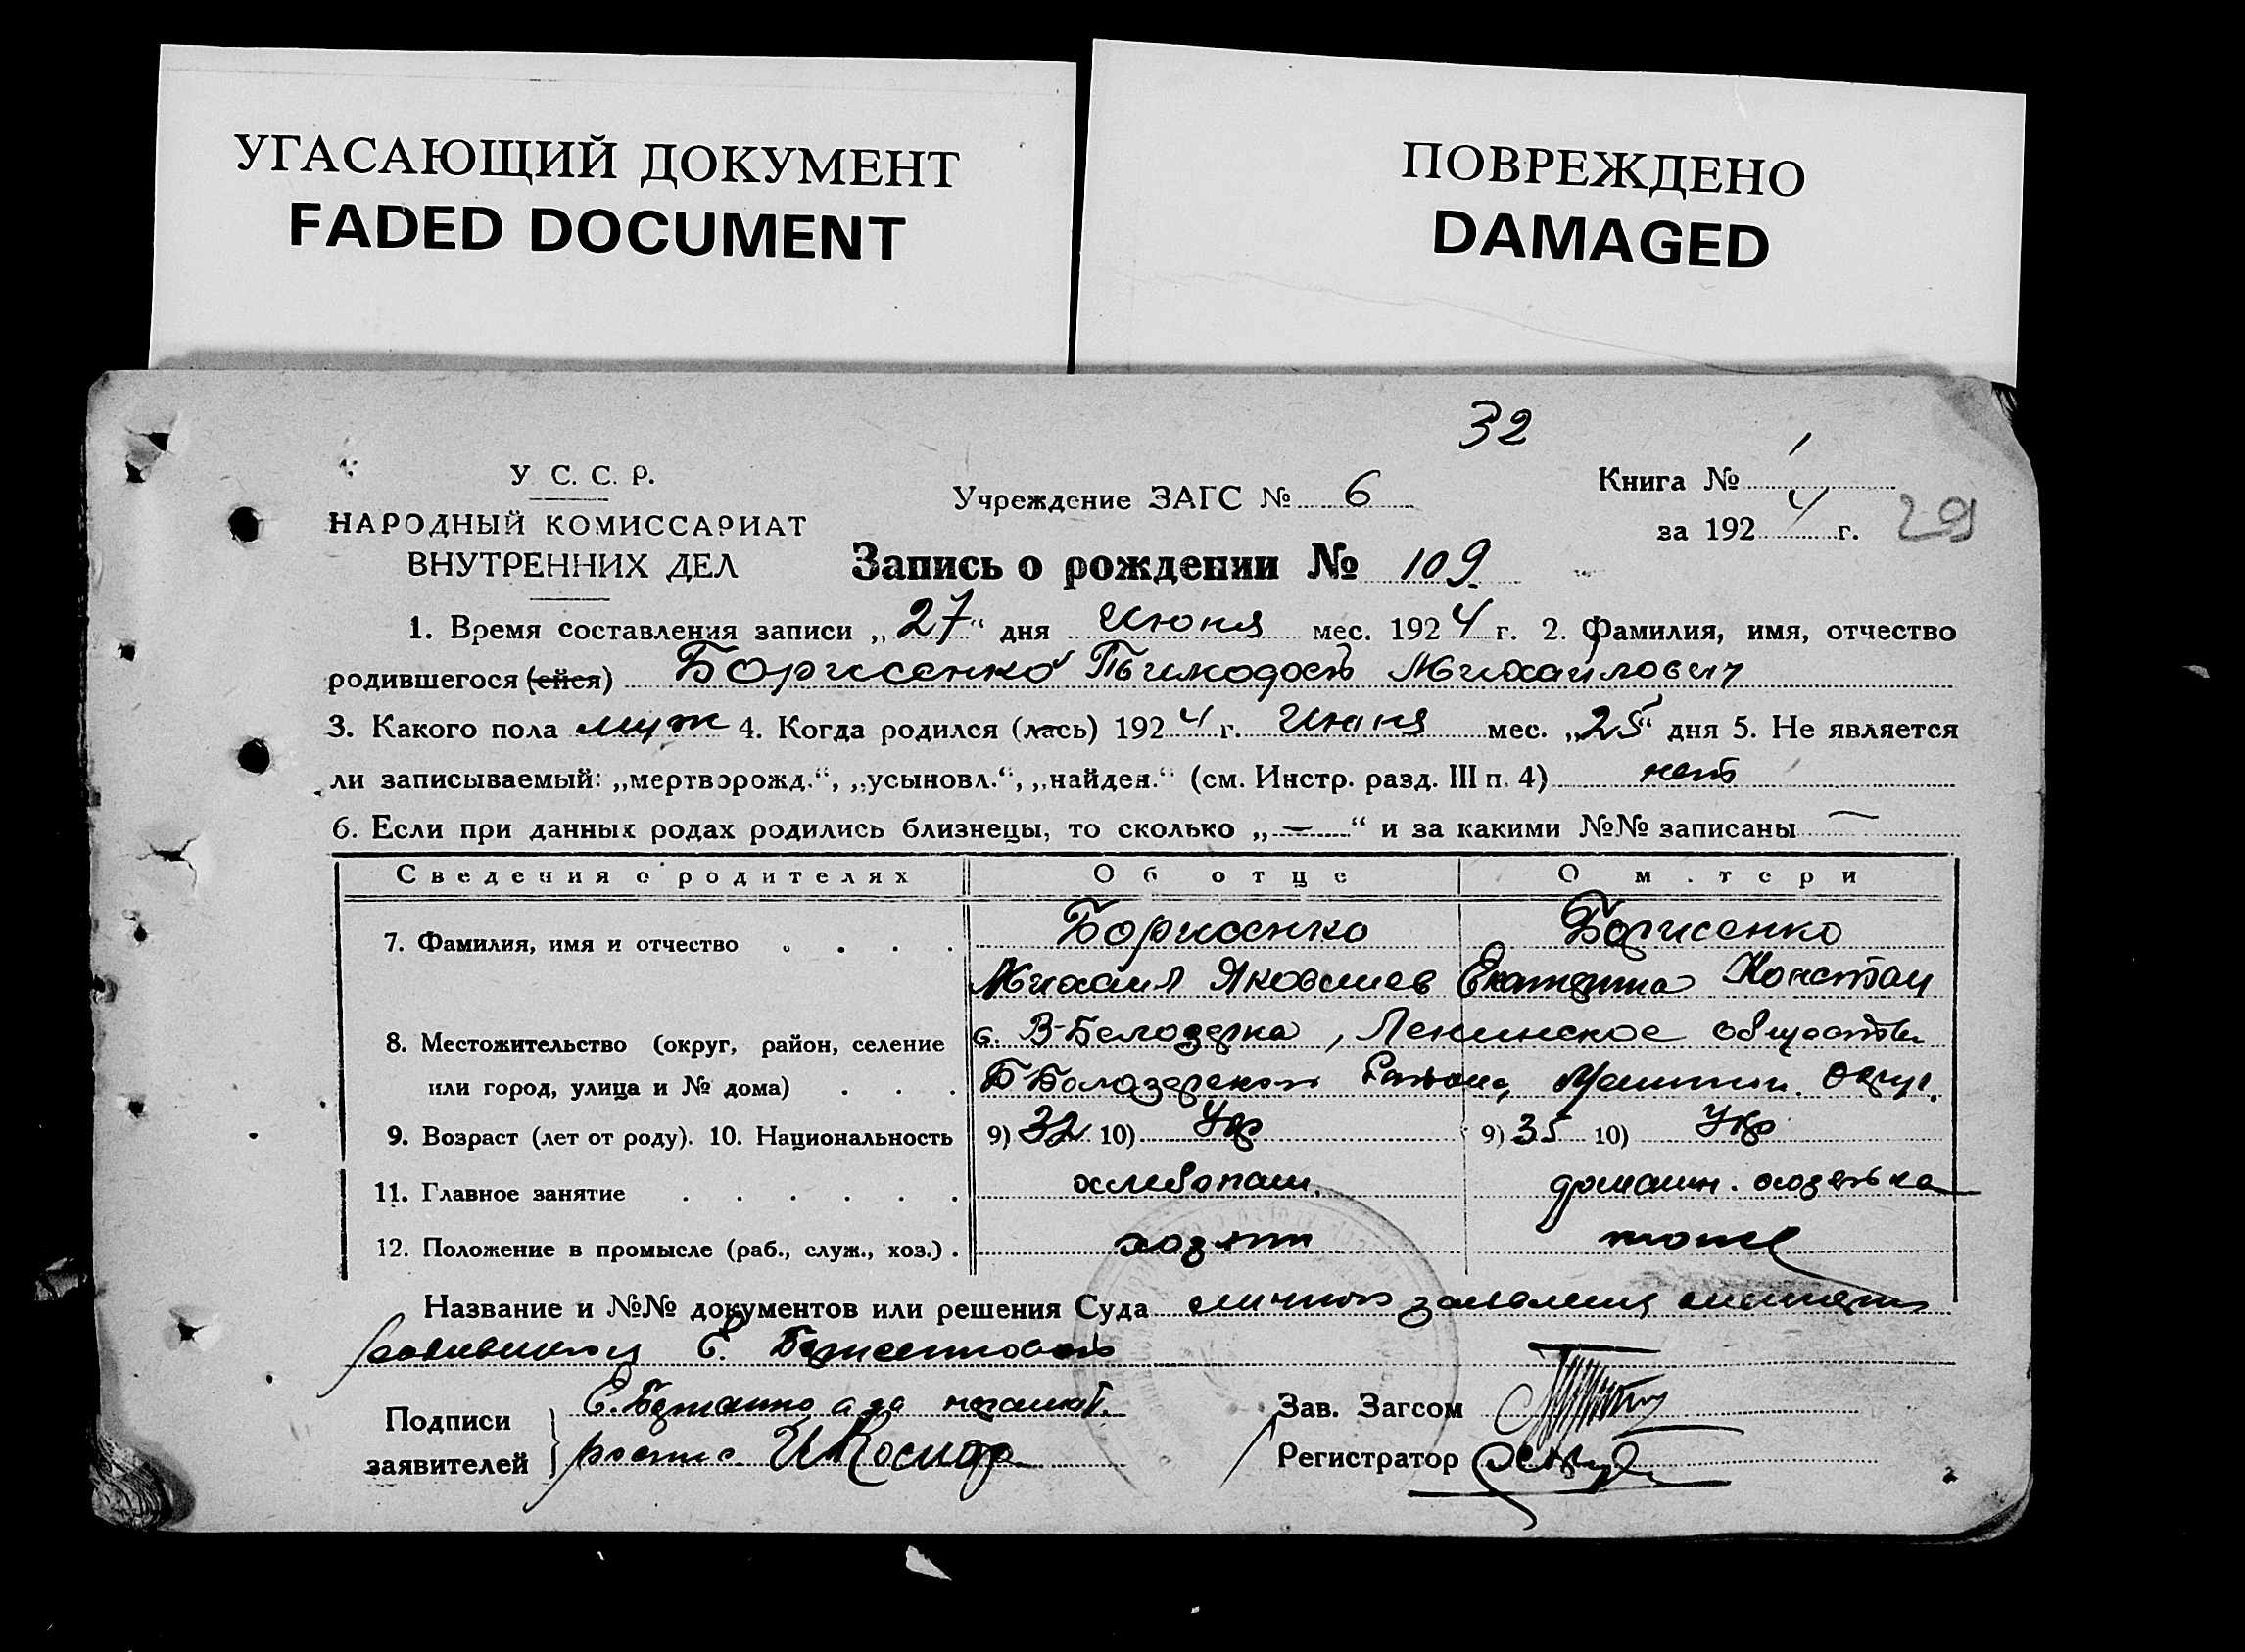 УГАСАЮЩИЙ ДОКУМЕНТ
FADED DOCUMENT
ПОВРЕЖДЕНО
DAMAGED
32
У С. С. Р.
НАРОДНЫЙ КОМИССАРИАТ
ВНУТРЕННИХ ДЕЛ
Учреждение ЗАГС № 6
Книга № 1
за 1924 г.
29
Запись о рождении № 109
1. Время составления записи „27“ дня Июня мес. 1924 г. 2. Фамилия, имя, отчество
родившегося (ейся) Борисенко Михайлович
3. Какого пола муж 4. Когда родился (лась) 1924 г. Июня мес. „25“ дня 5. Не является
ли записываемый: „мертворожд.“, „усыновл.“, „найден.“ (см. Инстр. разд. III п. 4) нет
6. Если при данных родах родились близнецы, то сколько „—“ и за какими №№ записаны —
Сведения о родителях Об отце О м.тери
7. Фамилия, имя и отчество Борисенко Борисенко
Михаил Яковлев Екатерина Констан
8. Местожительство (округ, район, селение с. В-Белозерка, Ленинское обществ
или город, улица и № дома) Б Белозерского Района, Округ.
9. Возраст (лет от роду). 10. Национальность 9) 32 10) Укр 9) 35 10) Укр
11. Главное занятие хлебопаш. домашн. хозяйка
12. Положение в промысле (раб., служ., хоз.) хозяин
Название и №№ документов или решения Суда заявления
родившегося Е.
Подписи
заявителей
Е.
Зав. Загсом
Регистратор